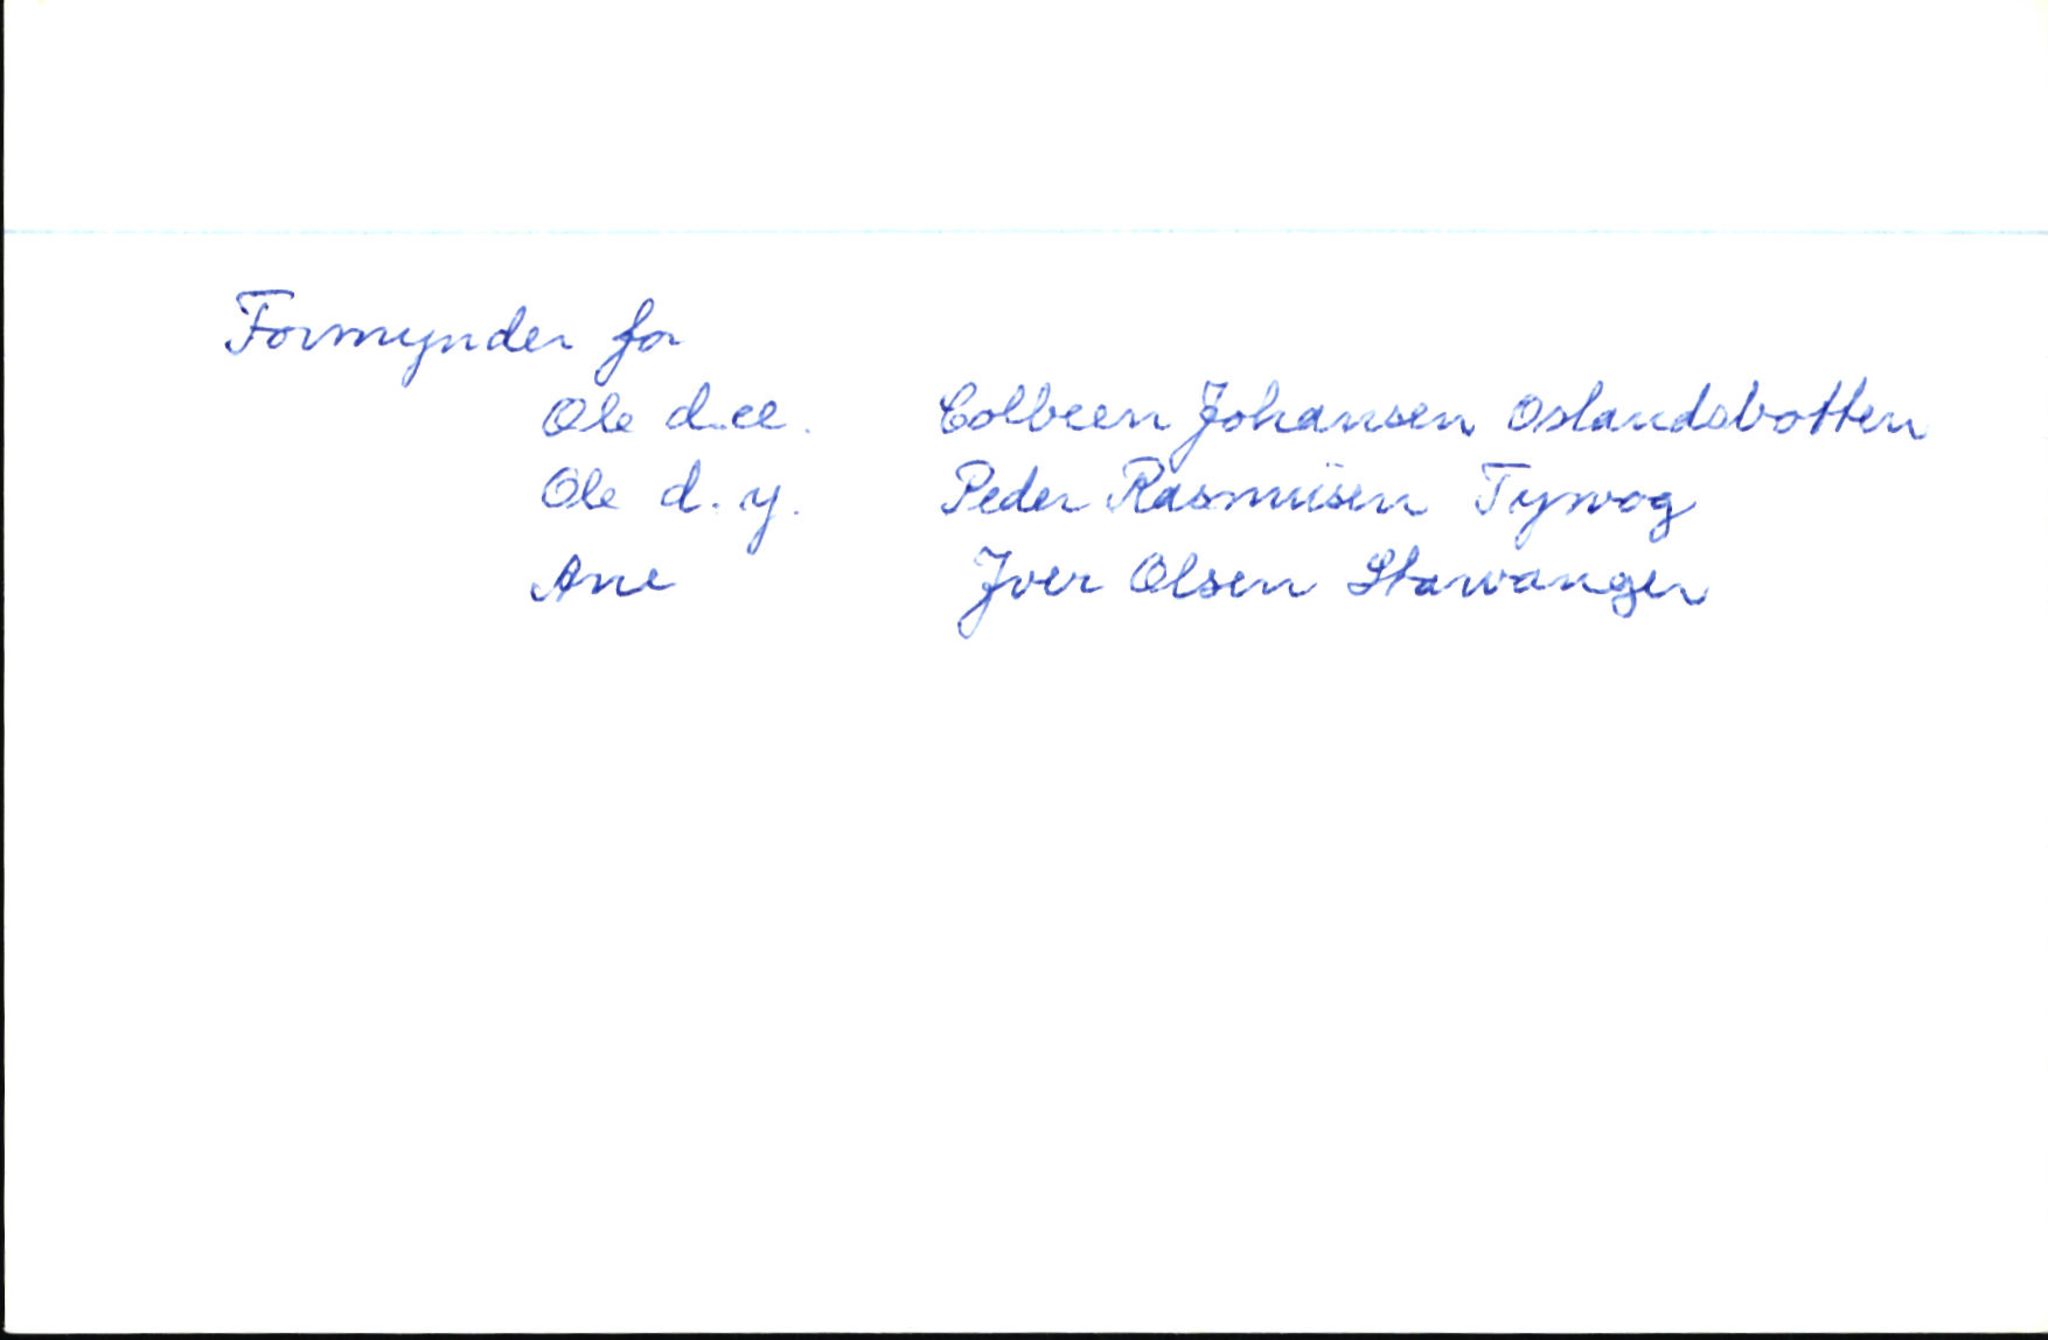 Formynder for
Ole d.el. Colbeen Johansen Oslandsbotten
Ole d.y. Peder Rasmüsen Tyswog
Ane Jver Olsen Stawanger